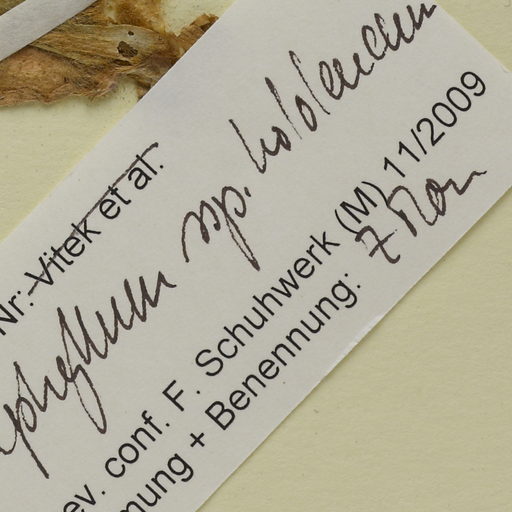 Nr: Vitek et al.
phyllum ssp. hololeucum
ev. conf. F. Schuhwerk (M) 11/2009
mung + Benennung: